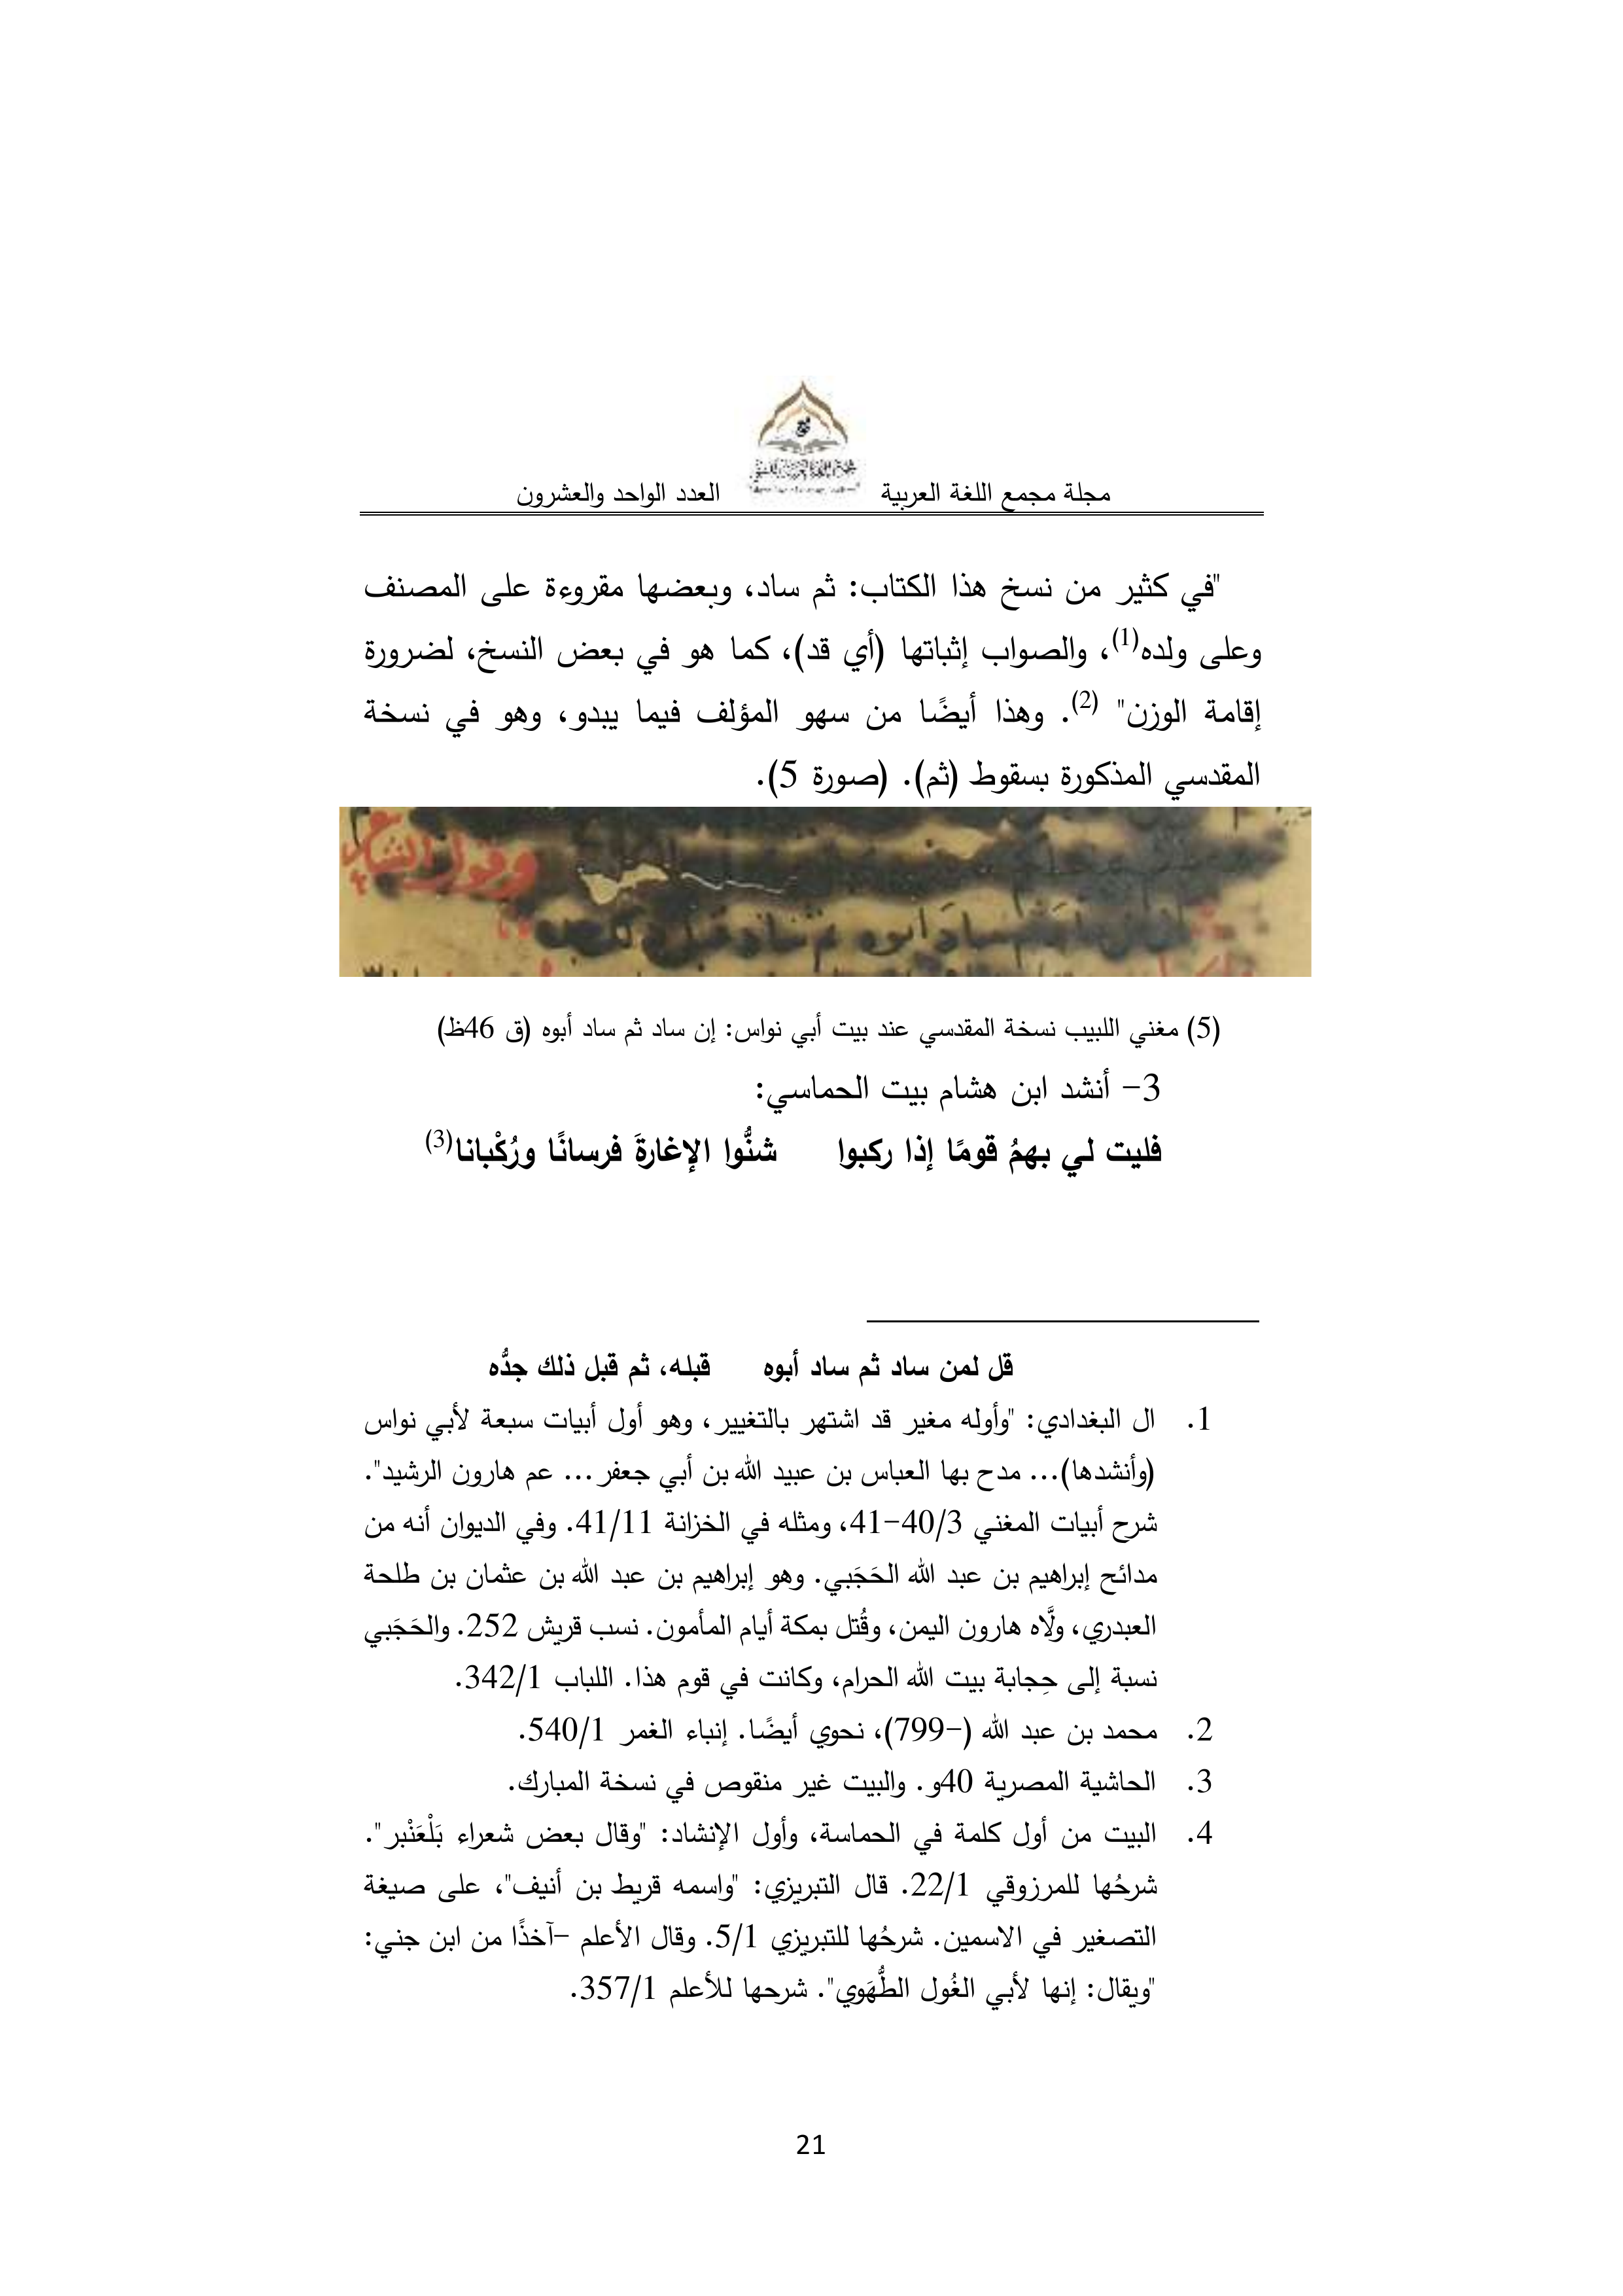 مجلة مجمع اللغة العربية العدد الواحد والعشرون
"في كثير من نسخ هذا الكتاب: ثم ساد، وبعضها مقروءة على المصنف
وعلى ولده(1)، والصواب إثباتها (أي قد)، كما هو في بعض النسخ، لضرورة
إقامة الوزن" (2). وهذا أيضًا من سهو المؤلف فيما يبدو، وهو في نسخة
المقدسي المذكورة بسقوط (ثم). (صورة 5).
وقول الشاعر
ساد أبوه ثم ساد
(5) مغني اللبيب نسخة المقدسي عند بيت أبي نواس: إن ساد ثم ساد أبوه (ق 46ظ)
3- أنشد ابن هشام بيت الحماسي:
فليت لي بهمُ قومًا إذا ركبوا شنُّوا الإغارةَ فرسانًا ورُكْبانا(3)
قل لمن ساد ثم ساد أبوه قبله، ثم قبل ذلك جدُّه
1. ال البغدادي: "وأوله مغير قد اشتهر بالتغيير، وهو أول أبيات سبعة لأبي نواس
(وأنشدها)... مدح بها العباس بن عبيد الله بن أبي جعفر... عم هارون الرشيد".
شرح أبيات المغني 40/3-41، ومثله في الخزانة 41/11. وفي الديوان أنه من
مدائح إبراهيم بن عبد الله الحَجَبي. وهو إبراهيم بن عبد الله بن عثمان بن طلحة
العبدري، ولَّاه هارون اليمن، وقُتل بمكة أيام المأمون. نسب قريش 252. والحَجَبي
نسبة إلى حِجابة بيت الله الحرام، وكانت في قوم هذا. اللباب 342/1.
2. محمد بن عبد الله (-799)، نحوي أيضًا. إنباء الغمر 540/1.
3. الحاشية المصرية 40و. والبيت غير منقوص في نسخة المبارك.
4. البيت من أول كلمة في الحماسة، وأول الإنشاد: "وقال بعض شعراء بَلْعَنْبر".
شرحُها للمرزوقي 22/1. قال التبريزي: "واسمه قريط بن أنيف"، على صيغة
التصغير في الاسمين. شرحُها للتبريزي 5/1. وقال الأعلم -آخذًا من ابن جني:
"ويقال: إنها لأبي الغُول الطُّهَوي". شرحها للأعلم 357/1.
21